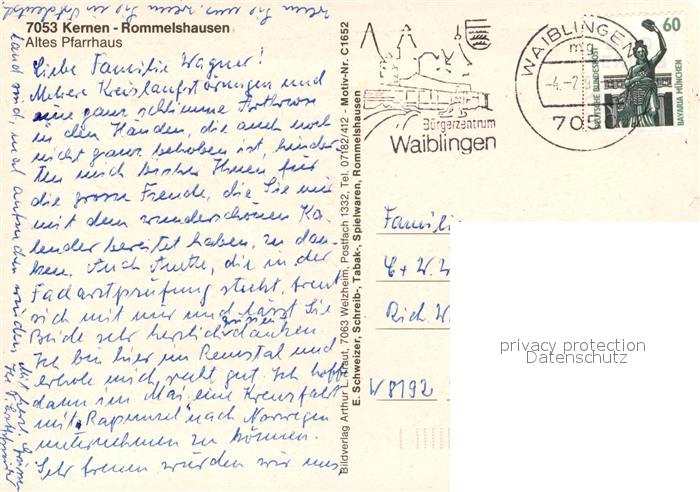 7053 Kernen - Rommelshausen
Altes Pfarrhaus
Liebe Familie Wagner!
Mehrere Kreislaufstörungen und
eine ganz schlimme Arthrose
in den Händen, die auch noch
nicht ganz behoben ist, hinder-
ten mich bisher Ihnen für
die grosse Freude, die Sie mir
mit dem wunderschönen Ka-
lender bereitet haben, zu dan-
ken. Auch die in der
Facharztprüfung steckt, freut
sich mit mir und lässt Sie
Beide sehr herzlich grüssen
danken.
Ich bin hier im Remstal und
erhole mich recht gut. Ich hoffe
dann im Mai eine Kreuzfahrt
mit nach Norwegen
unternehmen zu können.
Sehr freuen würden wir uns
wenn Sie uns, wenn Sie in
Land sind, mal aufsuchen würden. Mit herzl.
Bildverlag Arthur L. Kraut, 7063 Welzheim, Postfach 1332, Tel. 07182/412 · Motiv-Nr. C1652
E. Schweizer, Schreib-, Tabak-, Spielwaren, Rommelshausen
Bürgerzentrum
Waiblingen
WAIBLINGEN
mg
-4.-2.
705
60
DEUTSCHE BUNDESPOST
BAVARIA MÜNCHEN
Familie
E + W. W
Rich. W
W 8192
privacy protection
Datenschutz